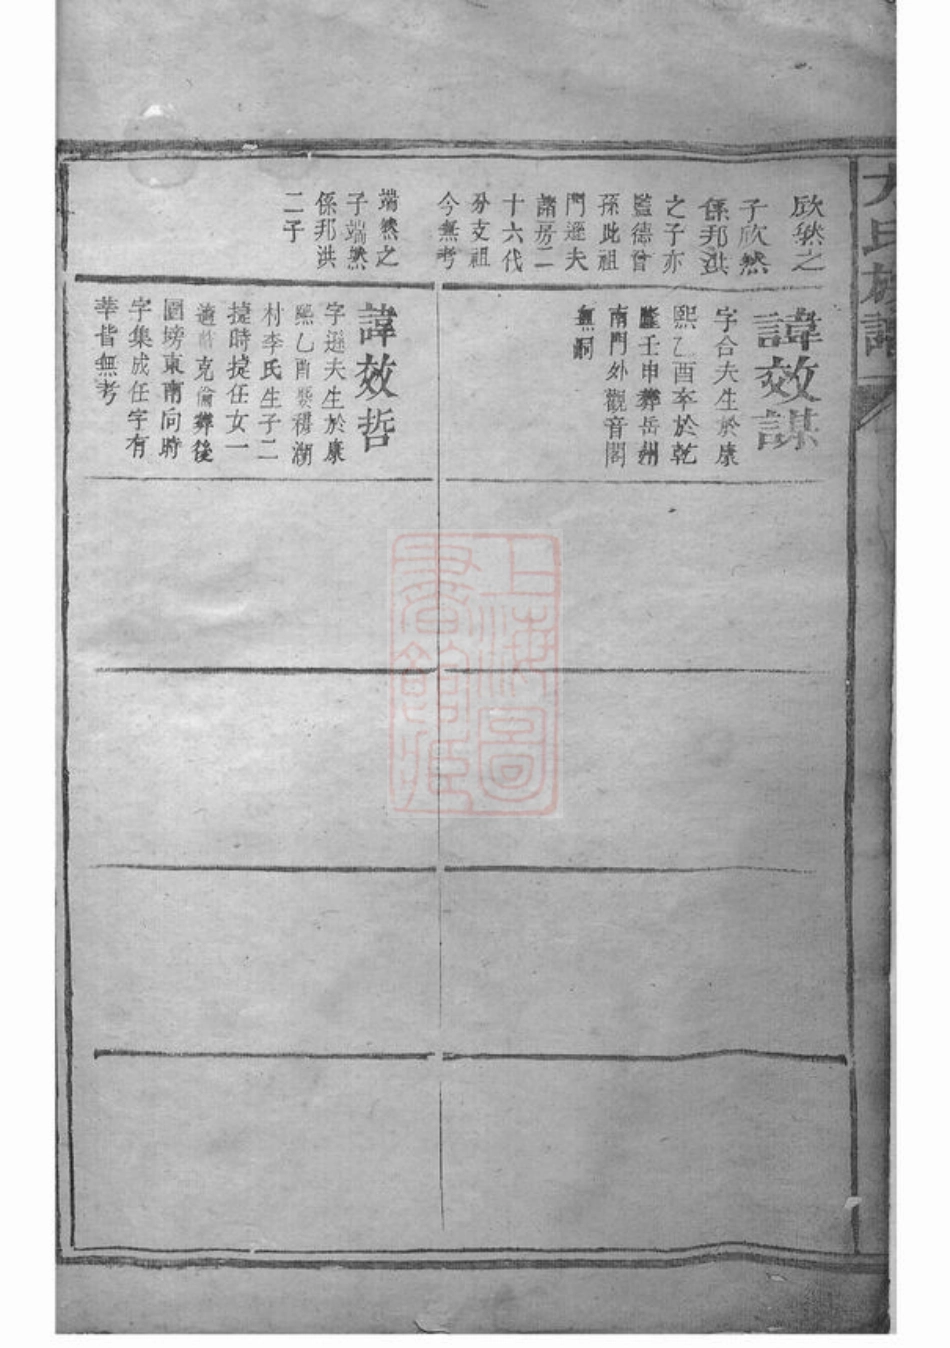 欣然之
子欣然
係邦洪
之子亦
監德曾
孫此祖
門遜夫
諸房二
十六代
分支祖
今無考
諱效謀
字合夫生於康
熙乙酉卒於乾
隆壬申葬岳州
南門外觀音閣
無嗣
端然之
子端然
係邦洪
二子
諱效哲
字遜夫生於康
熙乙酉娶穆湖
村李氏生子二
捷時捷任女一
適 克倫葬後
園塝東南向時
字集成任字有
華皆無考
氏族譜
上海圖
書館藏